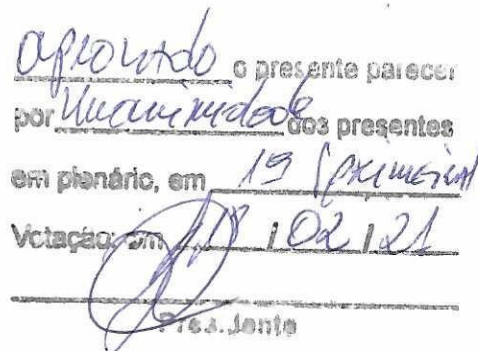 aprovado o presente parecer
por Unanimidade dos presentes
em plenário, em 1ª (primeira)
Votação, em 18 / 02 / 21
Presidente